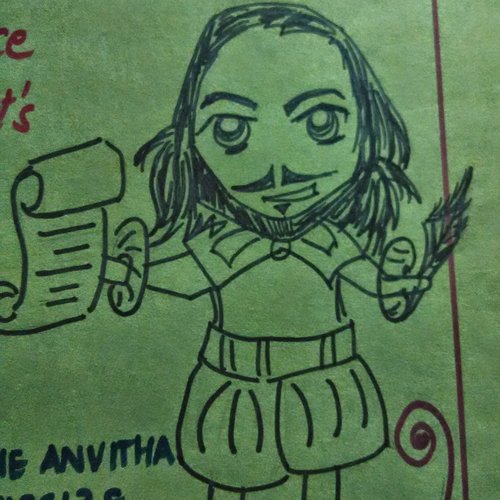 ce
t's
IE ANVITHA